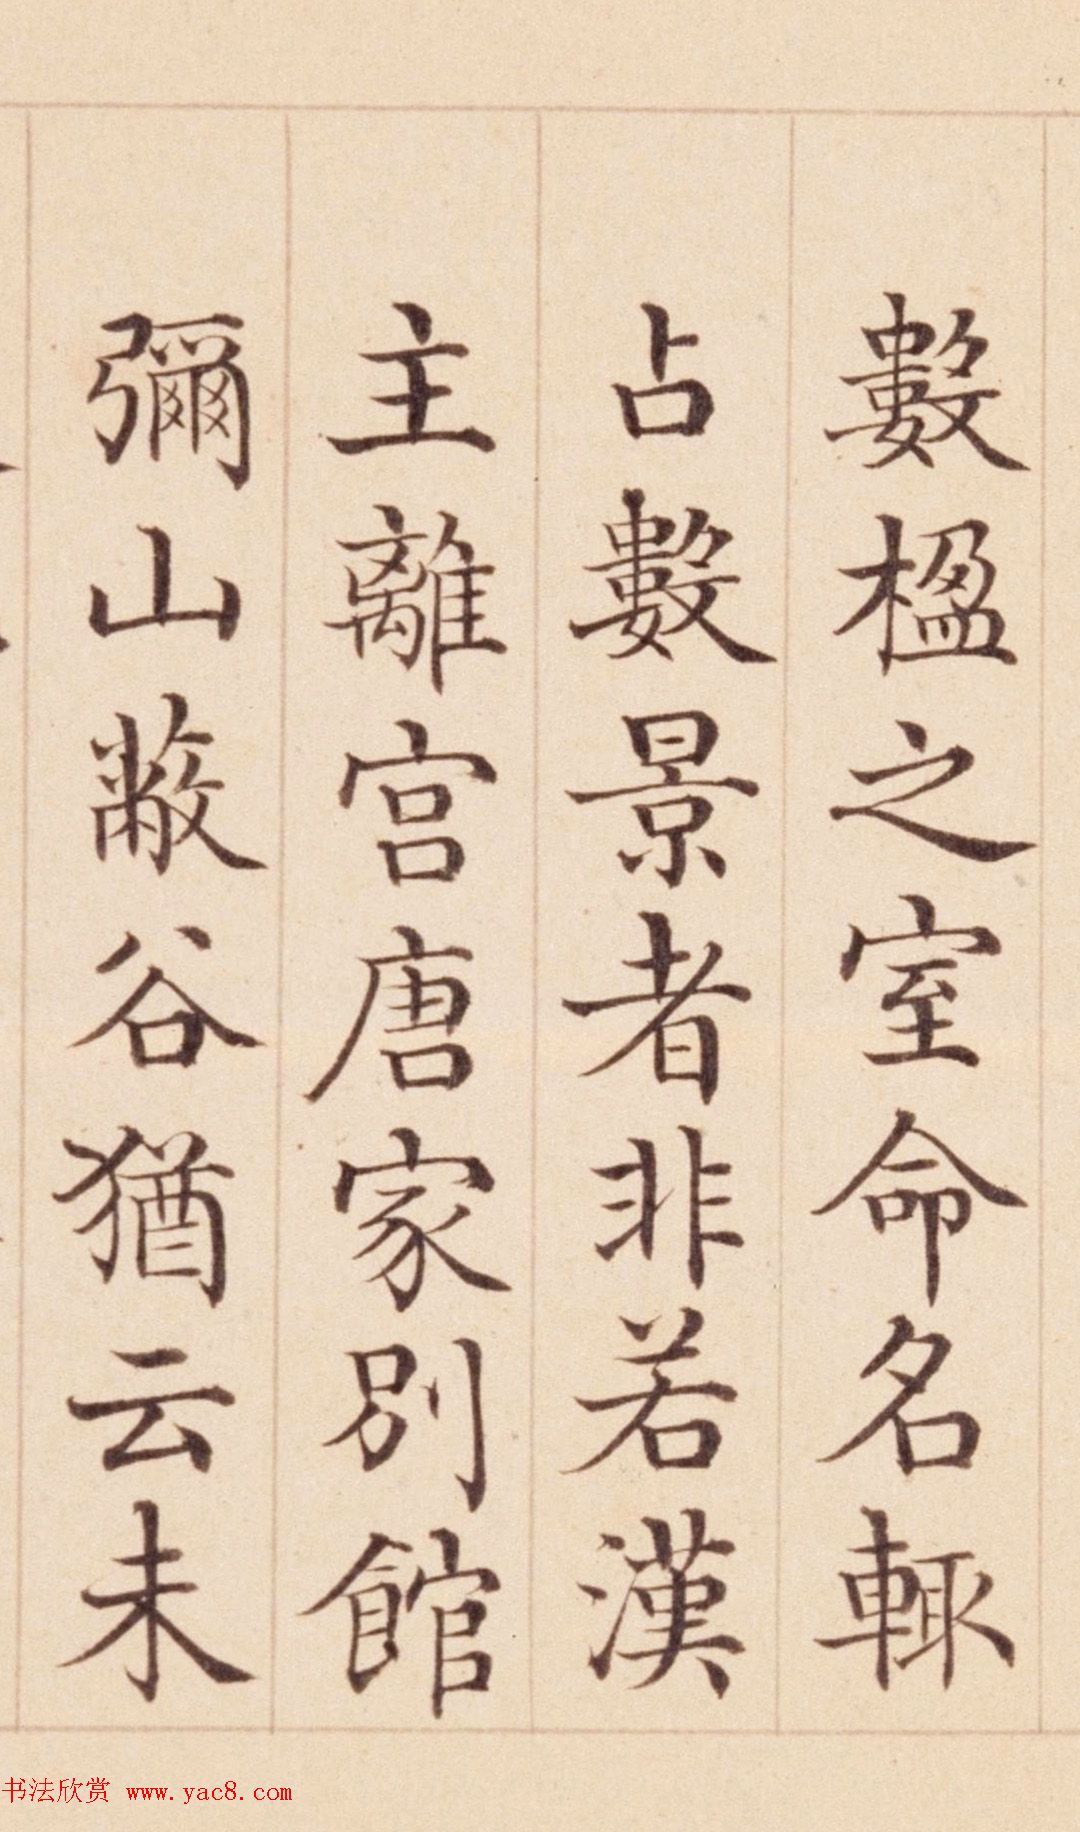 數楹之室命名輙
占數景者非若漢
主離宮唐家別館
彌山蔽谷猶云未
书法欣赏 www.yac8.com